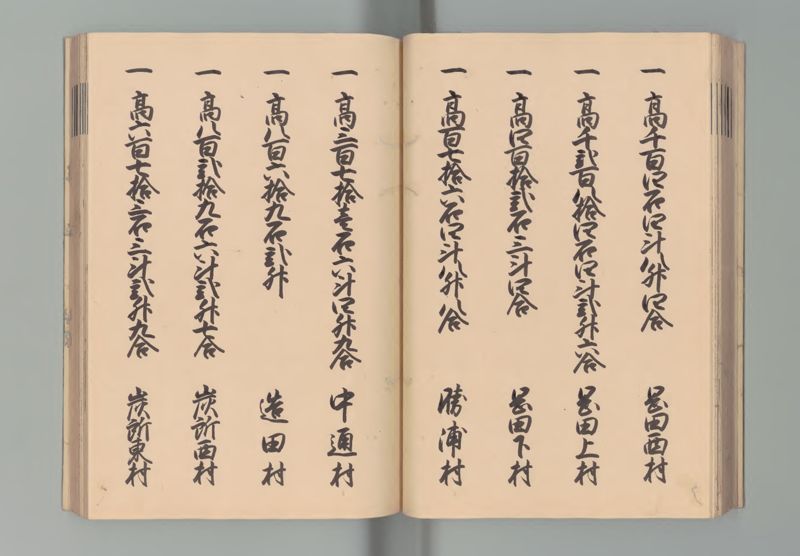 一 高千百四石四斗八升四合 岡田西村
一 高千弐百八拾四石四斗弐升六合 岡田上村
一 高四百拾弐石三斗四合 岡田下村
一 高百七拾六石四斗八升八合 勝浦村
一 高三百七拾壱石六斗四升九合 中通村
一 高八百六拾九石弐升 造田村
一 高八百弐拾九石六斗弐升七合 炭所西村
一 高六百七拾三石三斗弐升九合 炭所東村